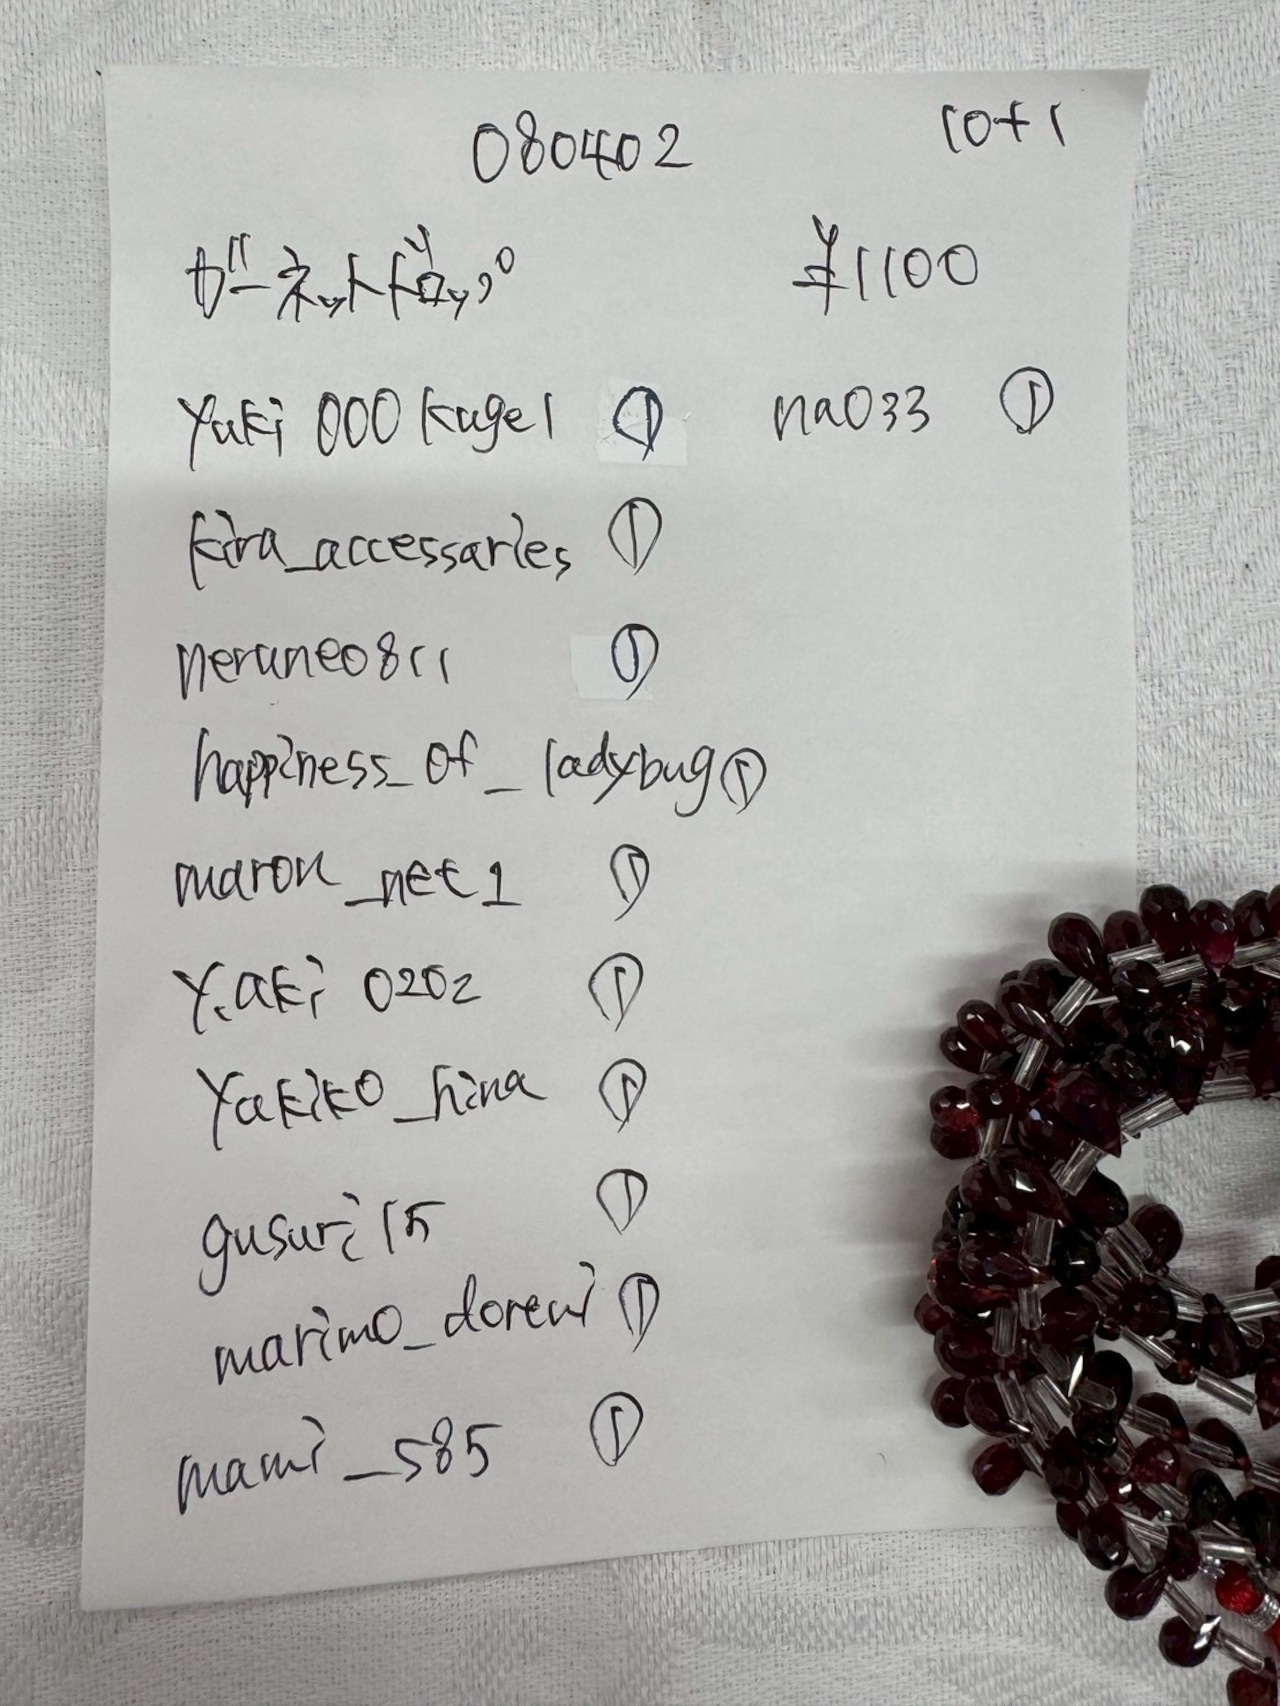 080402 10+1
ガーネットドロップ ¥1100
yuki 000 kugel ① na033 ①
kira_accessaries ①
nerune0811 ①
happiness_of_ladybug ①
maron_net1 ①
Y.aki 0202 ①
Yukiko_hina ①
gusuri15 ①
marimo_doremi ①
mami_585 ①